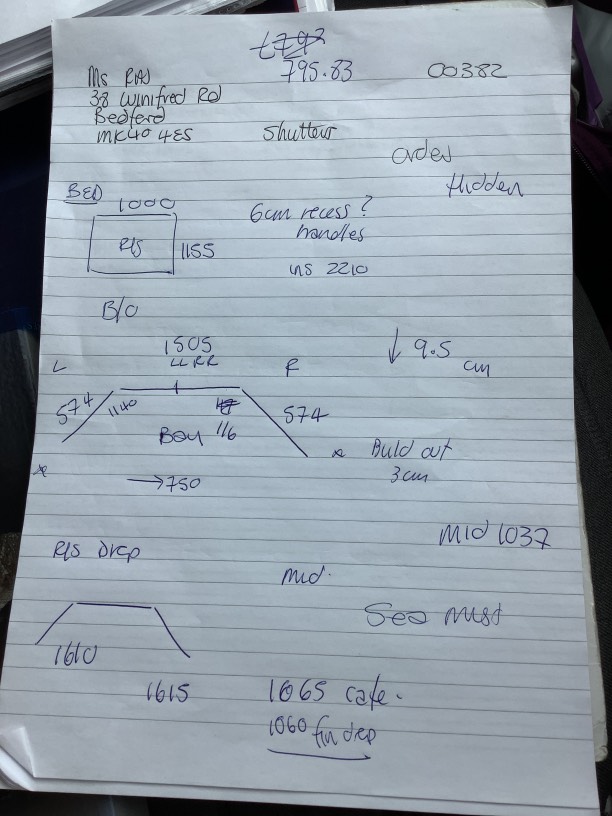 795.83
00382
Ms RAJ
38 Winifred RD
Bedford
MK40 4ES
Shutters
Hidden
BED
1000
R/S
1155
6cm recess?
handles
ins 2210
B/O
1505
LLRR
L
R
↓ 9.5 cm
574
1140
116
574
Bay
→750
* Build out
3cm
*
Mid 1037
R/S Drop
mid.
Sea mist
1610
1615
1065 cafe.
1060 fin drop